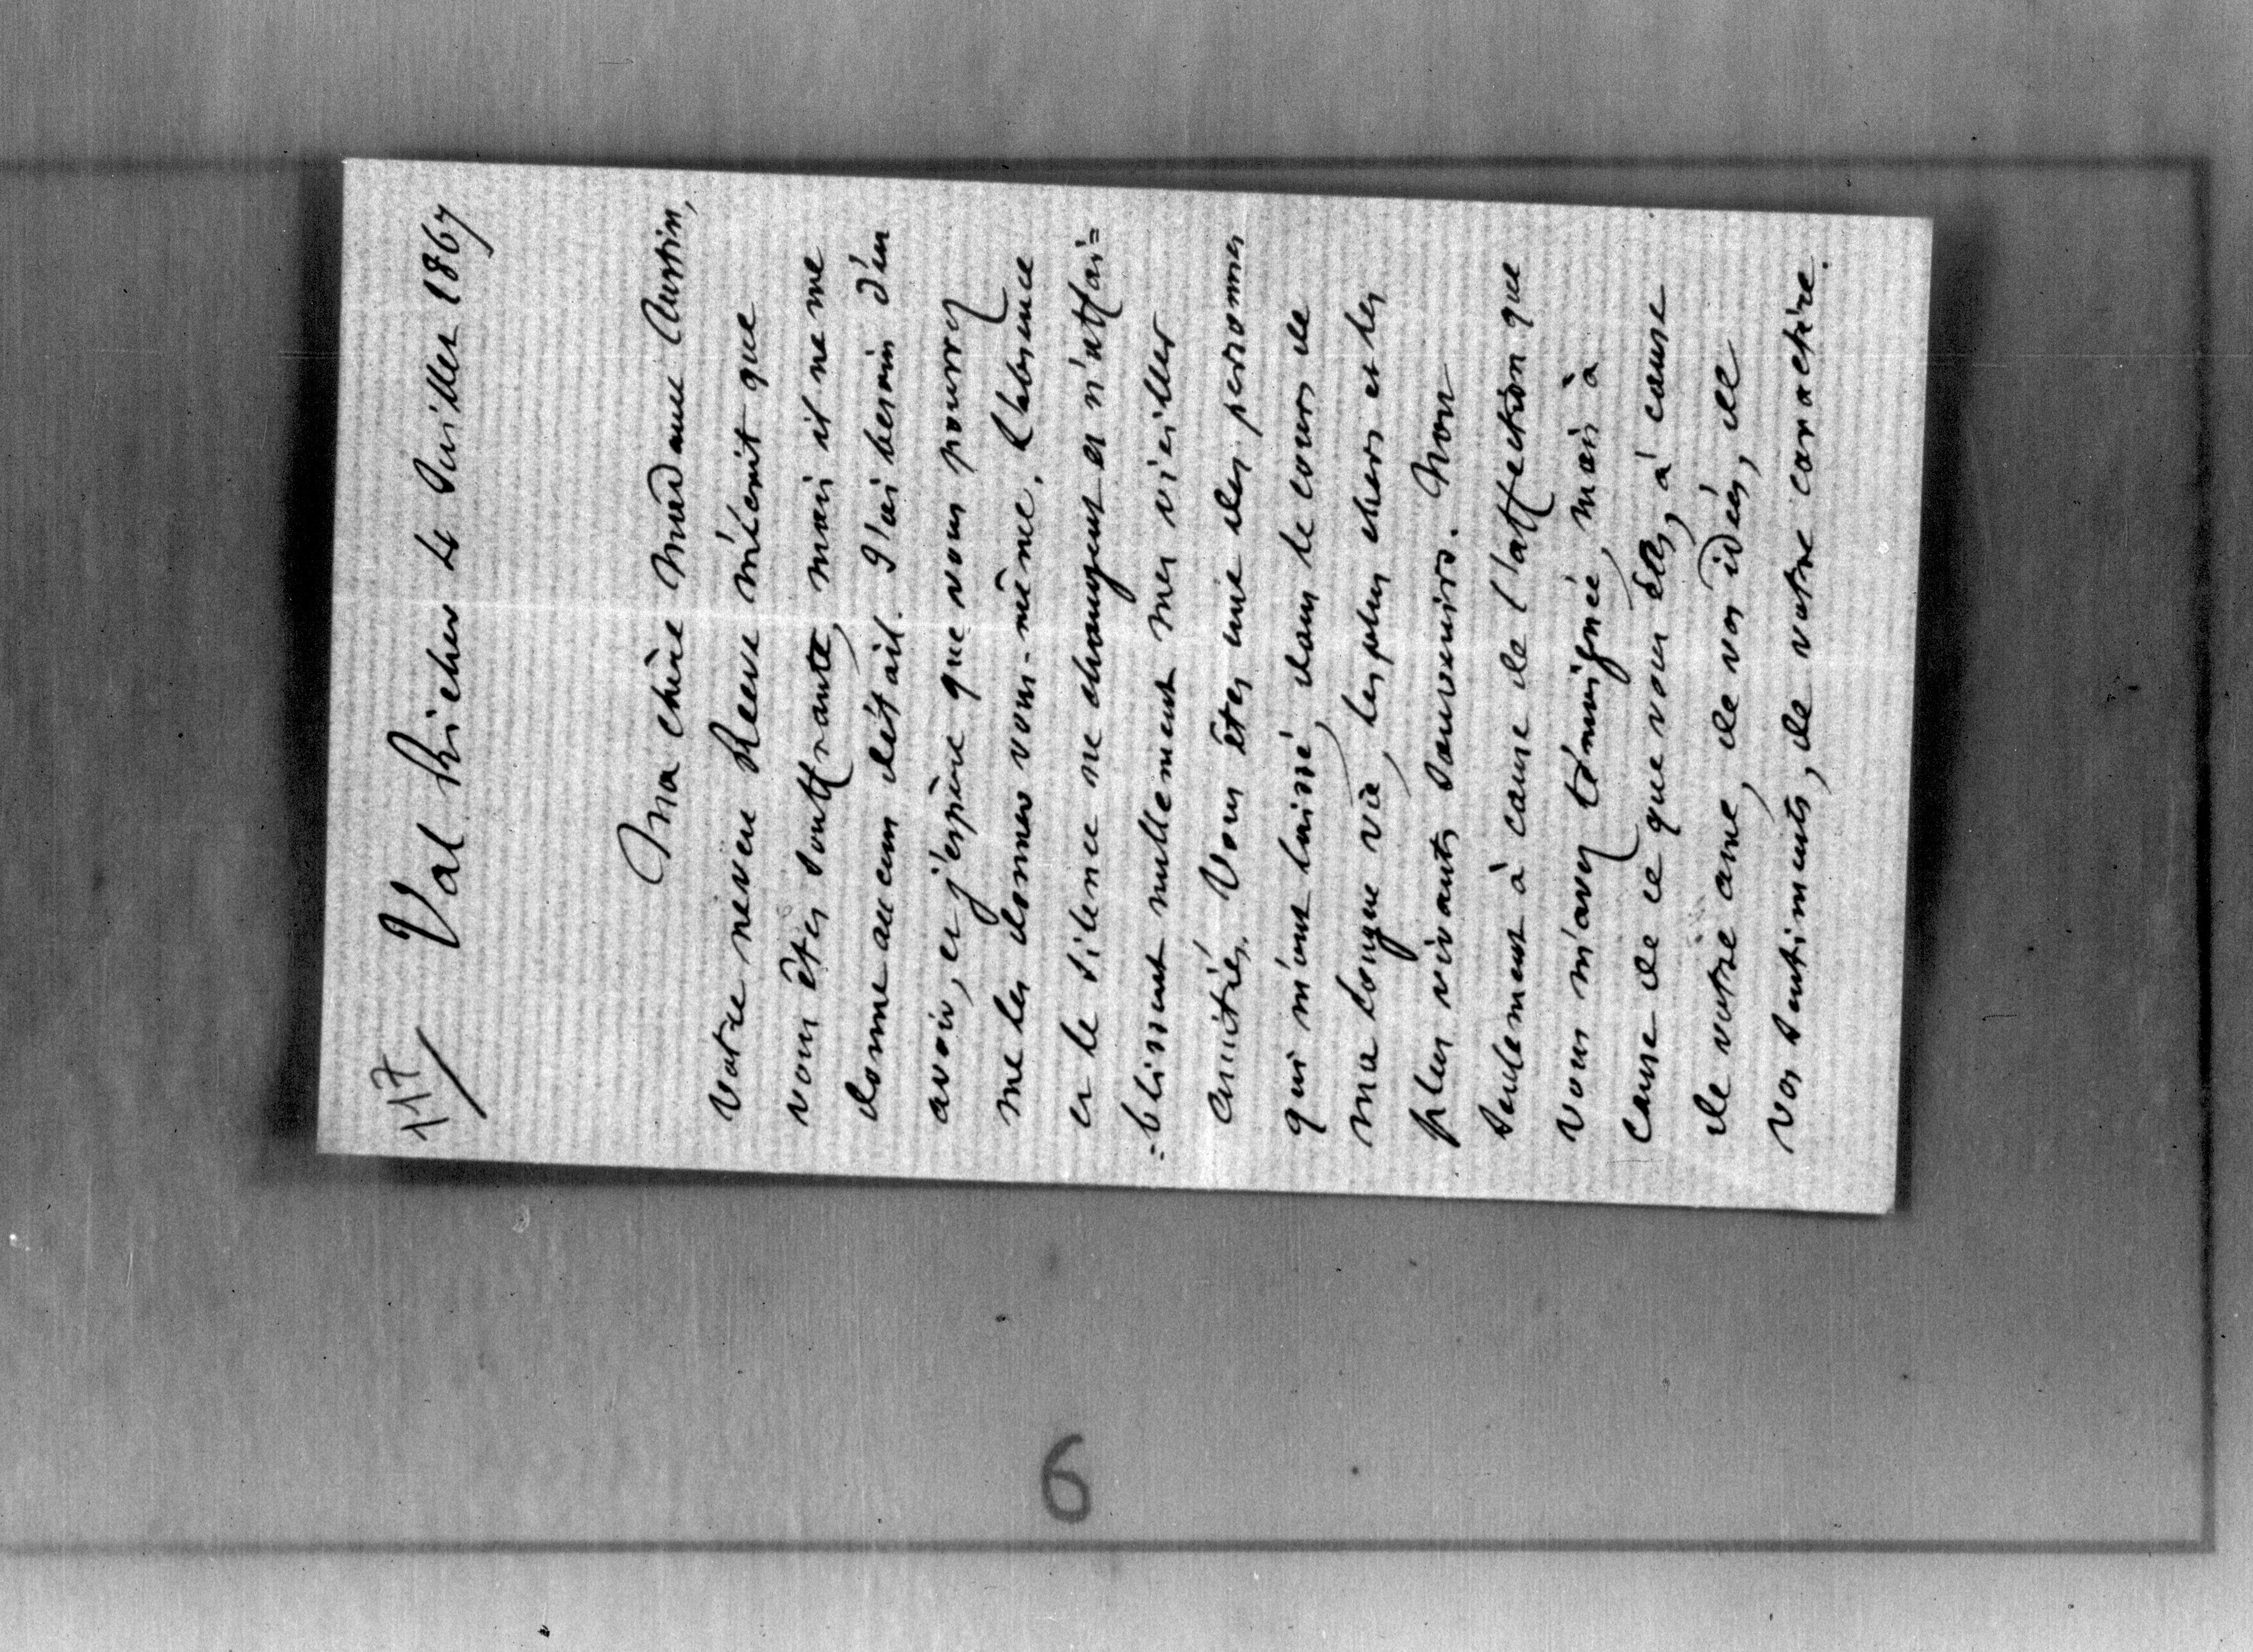 117/ Val Richer 4 Juillet 1867
Ma chère Madame Austin,
Votre neveu Reeve m'écrit que
vous êtes souffrante, mais il ne me
donne aucun détail. J'ai besoin d'en
avoir, et j'espère que vous pourrez
me les donner vous-même. L'absence
et le silence ne changent et n'affai=
=blissent nullement mes vieilles
amitiés. Vous êtes une des personnes
qui m'ont laissé, dans le cours de
ma longue vie, les plus chers et les
plus vivants souvenirs. Non
seulement à cause de l'affection que
vous m'avez témoignée, mais à
cause de ce que vous êtes, à cause
de votre ame, de vos idées, de
vos sentiments, de votre caractère.
6